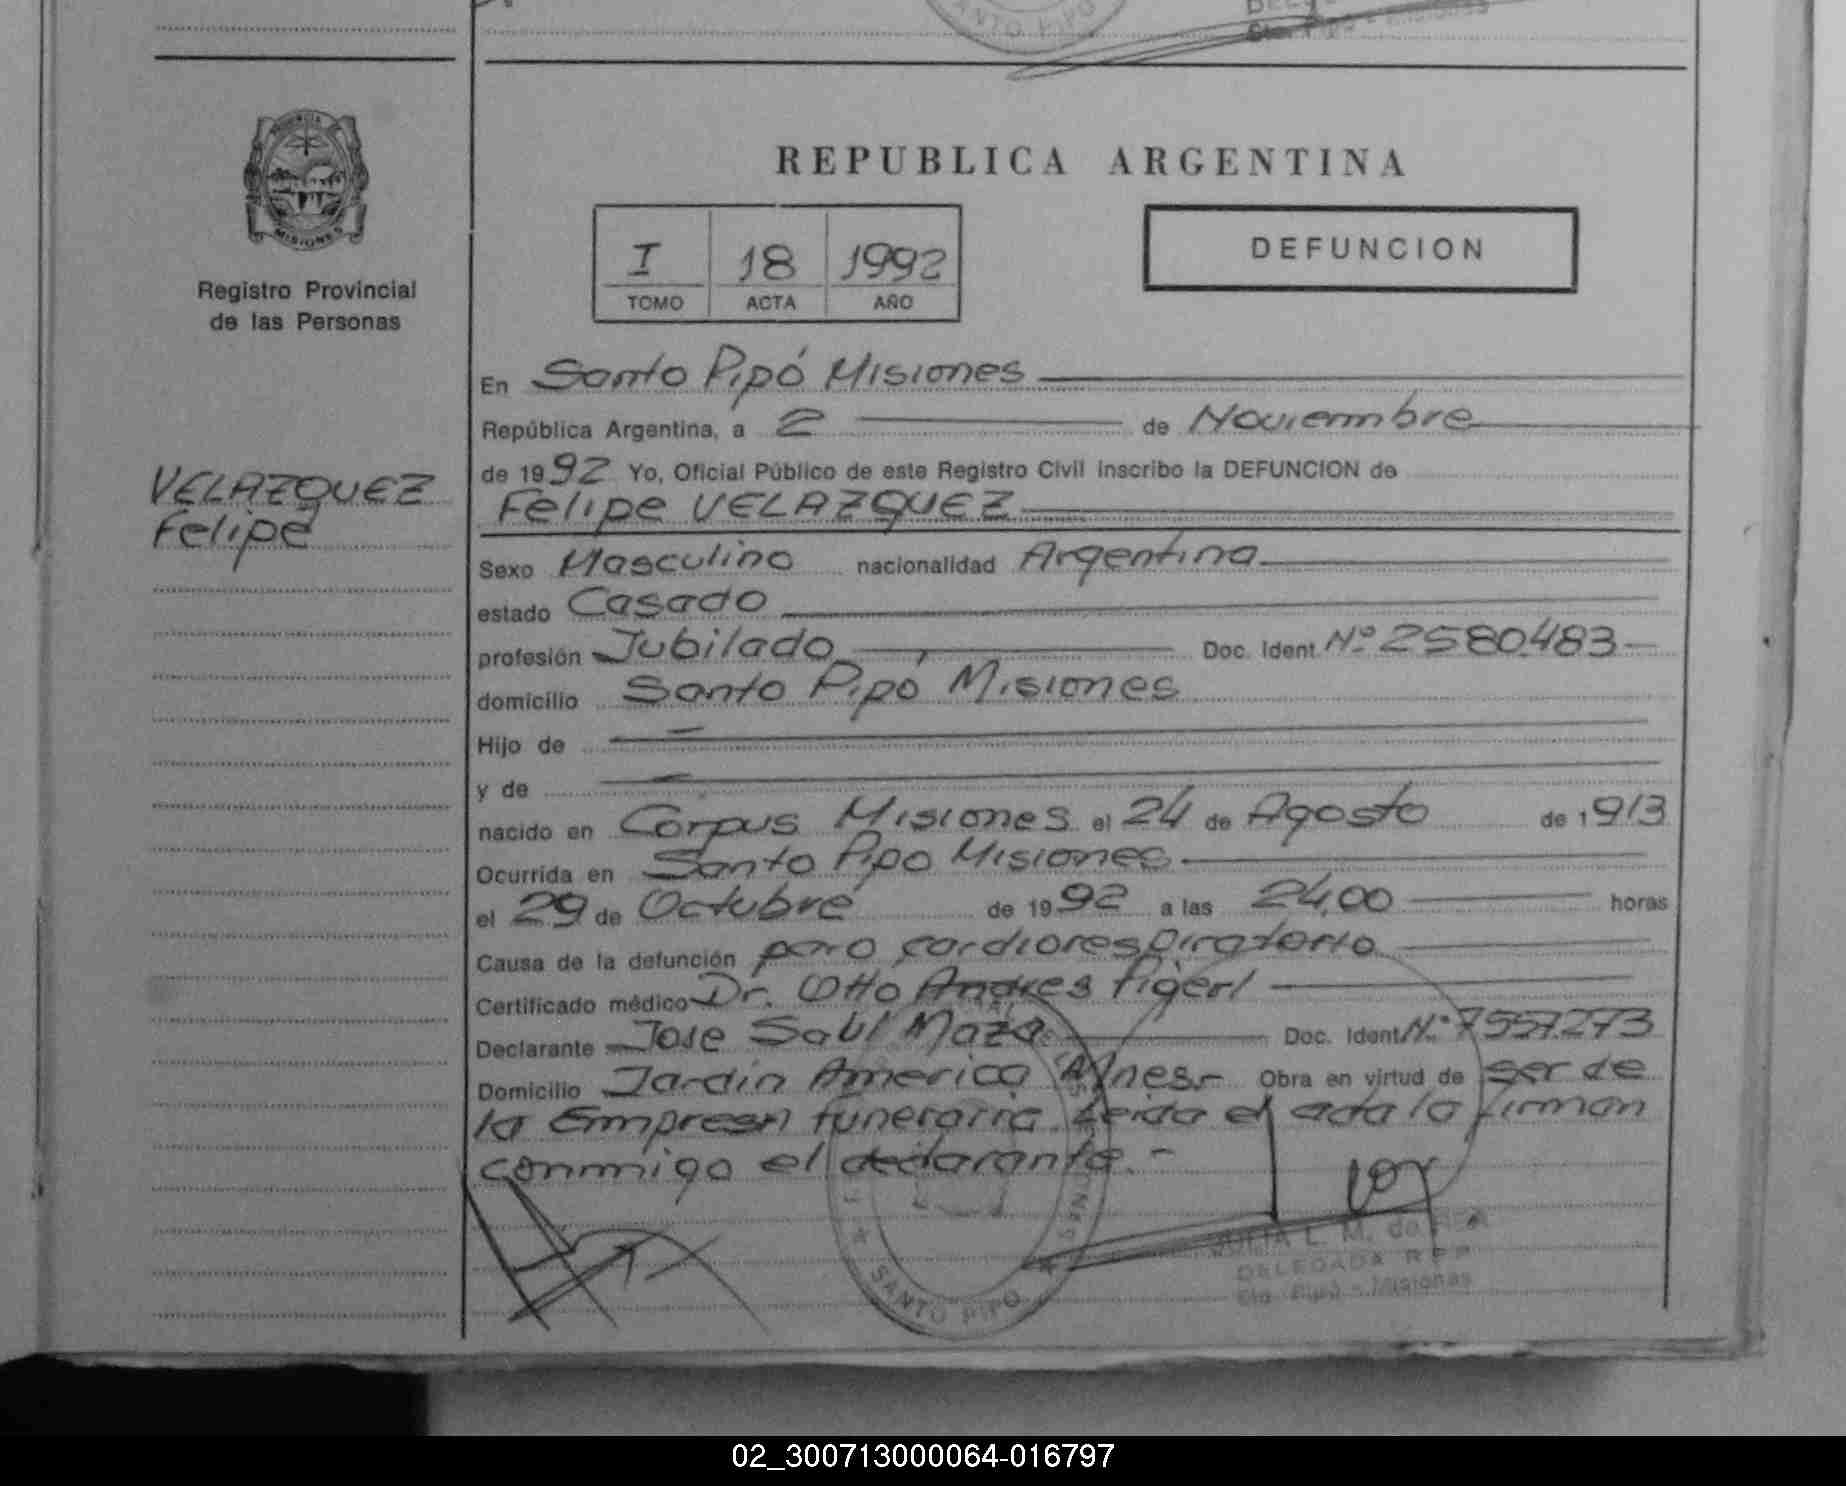 REPUBLICA ARGENTINA
PROVINCIA
MISIONES
Registro Provincial
de las Personas
I 18 1992
TOMO ACTA AÑO
DEFUNCION
VELAZQUEZ
Felipe
En Santo Pipó Misiones
República Argentina, a 2 de Noviembre
de 1992 Yo, Oficial Público de este Registro Civil inscribo la DEFUNCION de
Felipe VELAZQUEZ
Sexo Masculino nacionalidad Argentina
estado Casado
profesión Jubilado Doc. Ident. Nº 2580483
domicilio Santo Pipó Misiones
Hijo de
y de
nacido en Corpus Misiones el 24 de Agosto de 1913
Ocurrida en Santo Pipó Misiones
el 29 de Octubre de 1992 a las 24,00 horas
Causa de la defunción paro cardiorespiratorio
Certificado médico Dr. Otto Andres Pigerl
Declarante Jose Saul Maza Doc. Ident. Nº 7557273
Domicilio Jardín America Mnes.- Obra en virtud de ser de
la Empresa funeraria. Leida el acta la firman
conmigo el declarante.-
SANTO PIPO
L. M. de
DELEGADA R P P
Sto. Pipó - Misiones
02_300713000064-016797